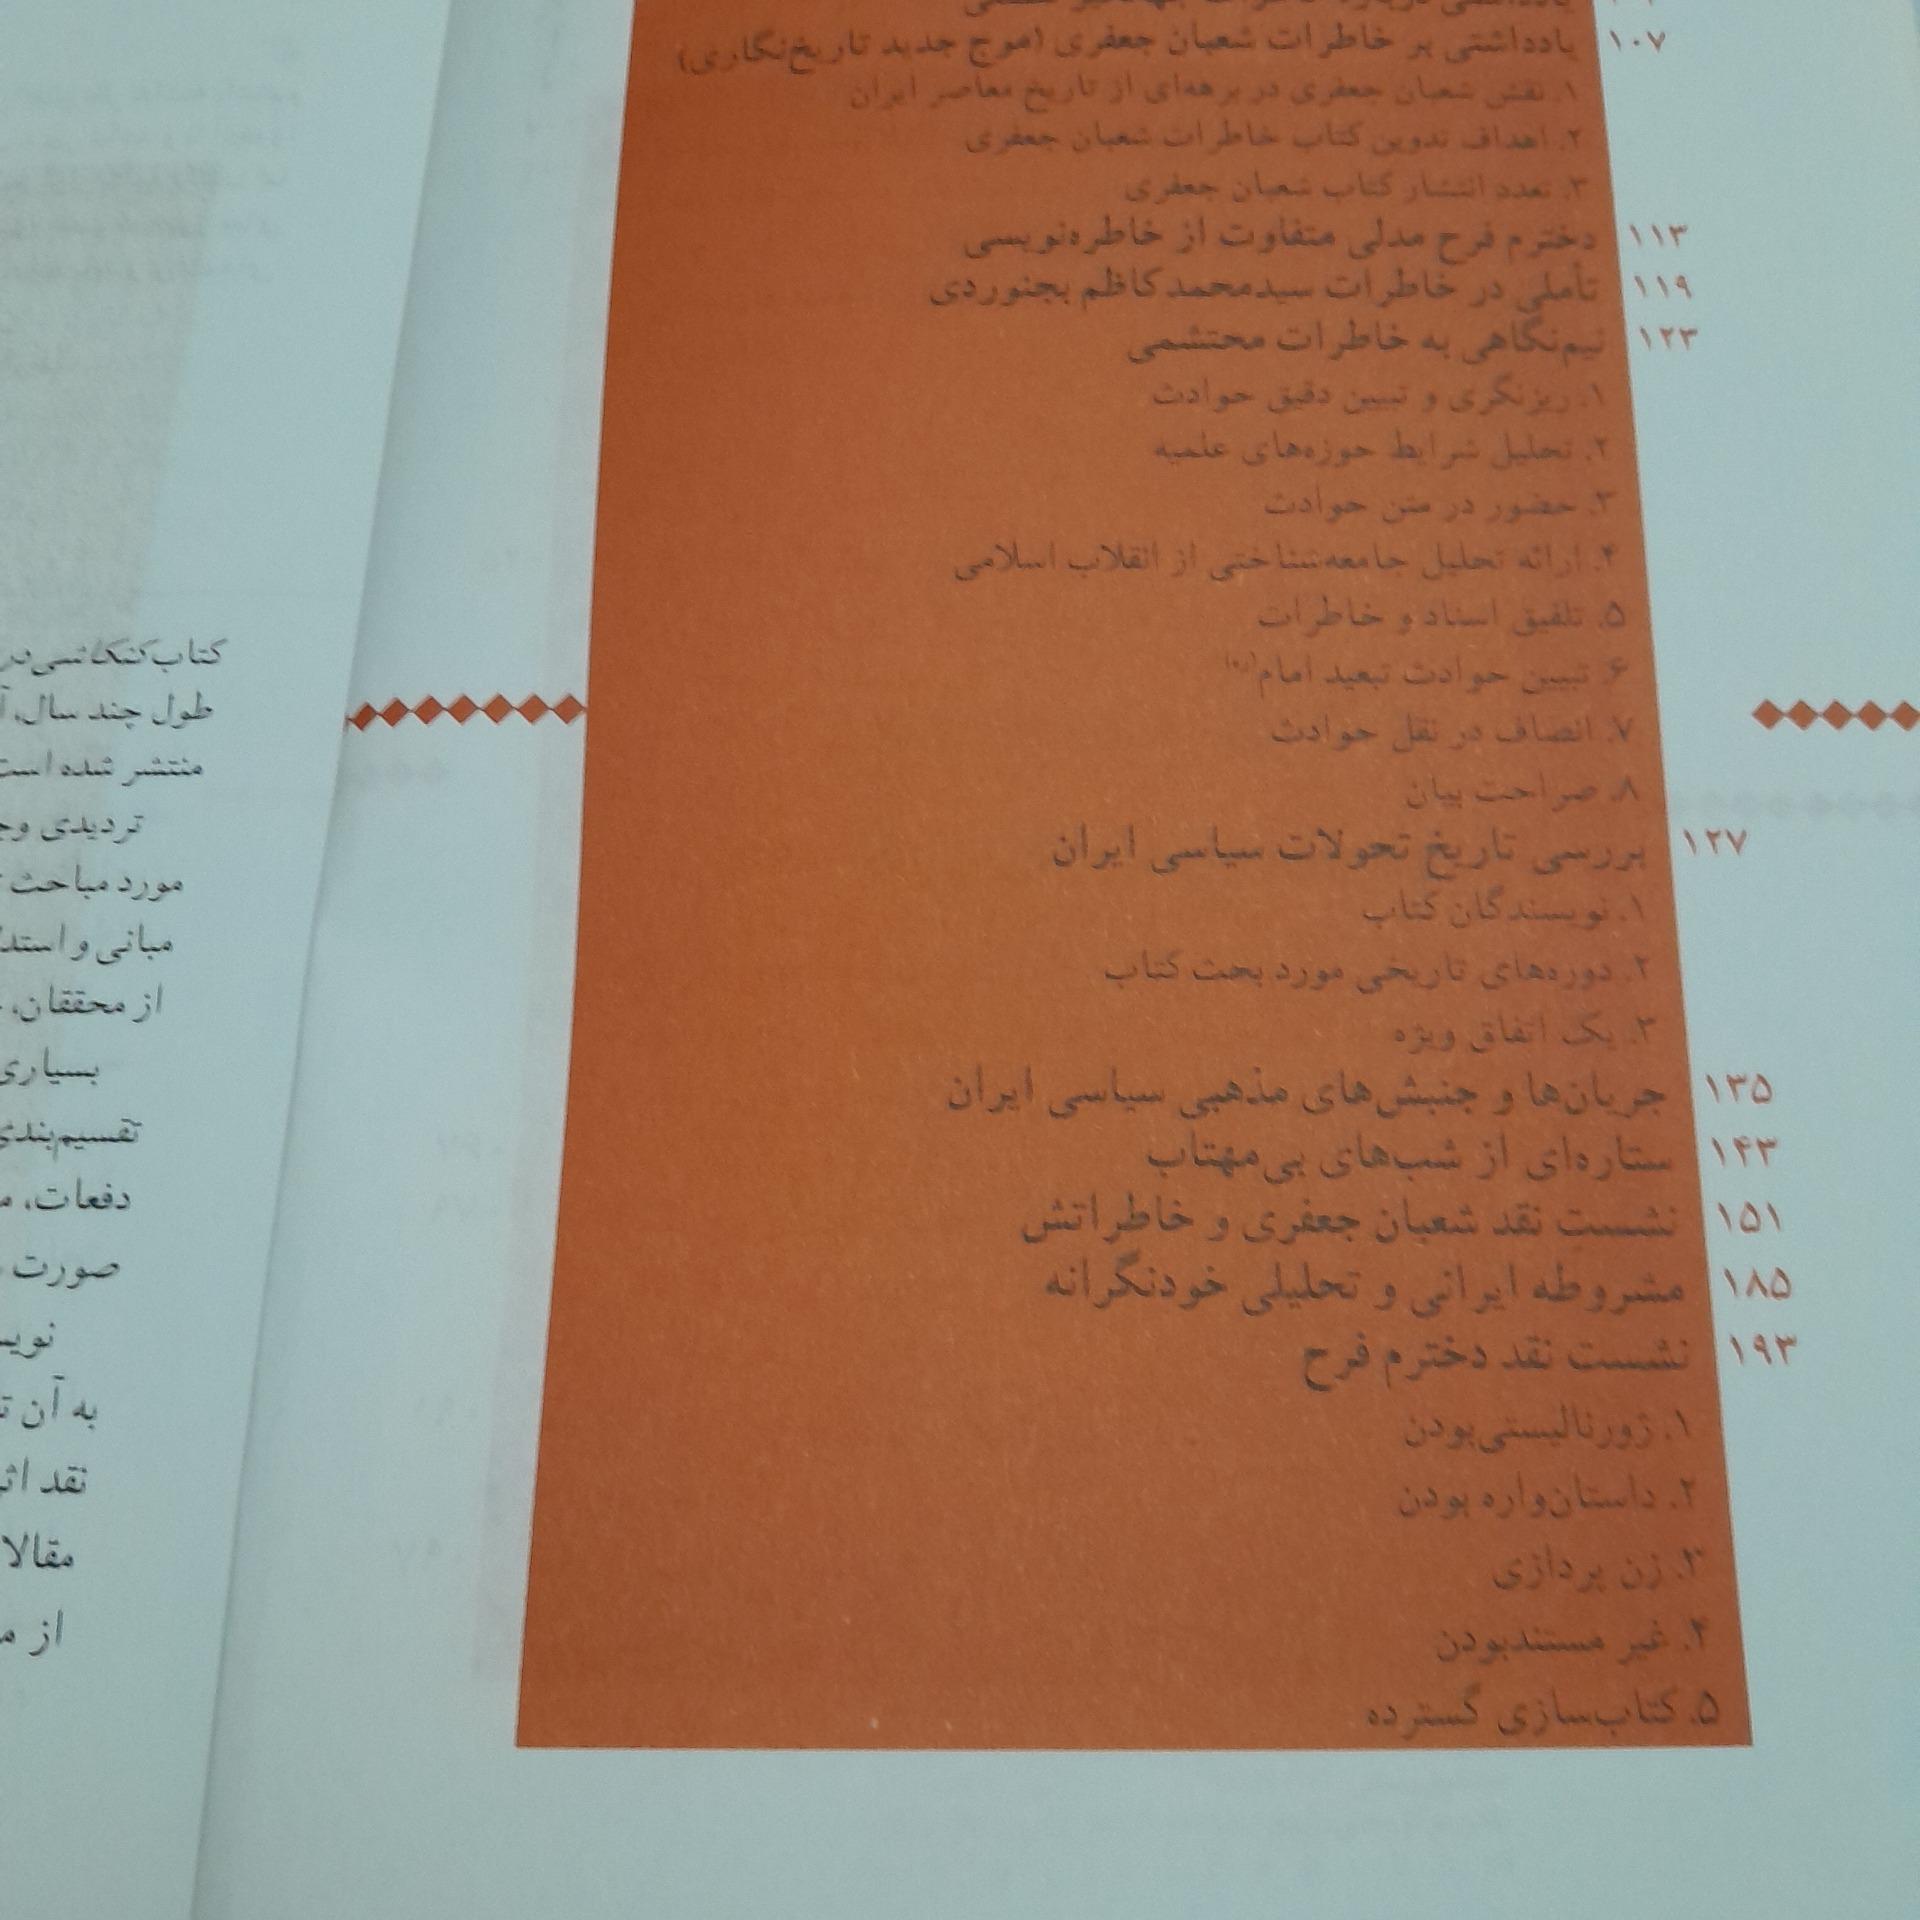 ۱۰۷ یادداشتی بر خاطرات شعبان جعفری (موج جدید تاریخ‌نگاری)
۱. نقش شعبان جعفری در برهه‌ای از تاریخ معاصر ایران
۲. اهداف تدوین کتاب خاطرات شعبان جعفری
۳. تعدد انتشار کتاب شعبان جعفری
۱۱۳ دخترم فرح مدلی متفاوت از خاطره‌نویسی
۱۱۹ تأملی در خاطرات سیدمحمدکاظم بجنوردی
۱۲۳ نیم‌نگاهی به خاطرات محتشمی
۱. ریزنگری و تبیین دقیق حوادث
۲. تحلیل شرایط حوزه‌های علمیه
۳. حضور در متن حوادث
۴. ارائه تحلیل جامعه‌شناختی از انقلاب اسلامی
۵. تلفیق اسناد و خاطرات
۶. تبیین حوادث تبعید امام(ره)
۷. انصاف در نقل حوادث
۸. صراحت بیان
۱۲۷ بررسی تاریخ تحولات سیاسی ایران
۱. نویسندگان کتاب
۲. دوره‌های تاریخی مورد بحث کتاب
۳. یک اتفاق ویژه
۱۳۵ جریان‌ها و جنبش‌های مذهبی سیاسی ایران
۱۴۳ ستاره‌ای از شب‌های بی‌مهتاب
۱۵۱ نشست نقد شعبان جعفری و خاطراتش
۱۸۵ مشروطه ایرانی و تحلیلی خودنگرانه
۱۹۳ نشست نقد دخترم فرح
۱. ژورنالیستی‌بودن
۲. داستان‌واره بودن
۳. زن پردازی
۴. غیر مستندبودن
۵. کتاب‌سازی گسترده
کتاب کنکاشی در
طول چند سال،
منتشر شده است
تردیدی
مورد مباحث
مبانی و
از محققان،
بسیاری
تقسیم‌بندی
دفعات،
صورت
به آن
نقد
از